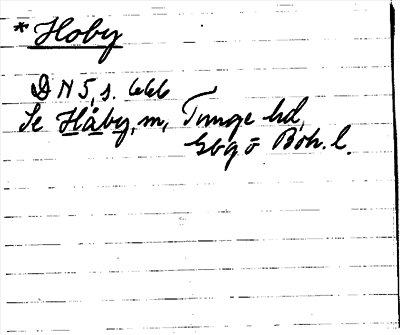 *Hoby
DN 5, s. 666
Se Håby, m, Tunge hd,
Göteborgs o Boh. l.